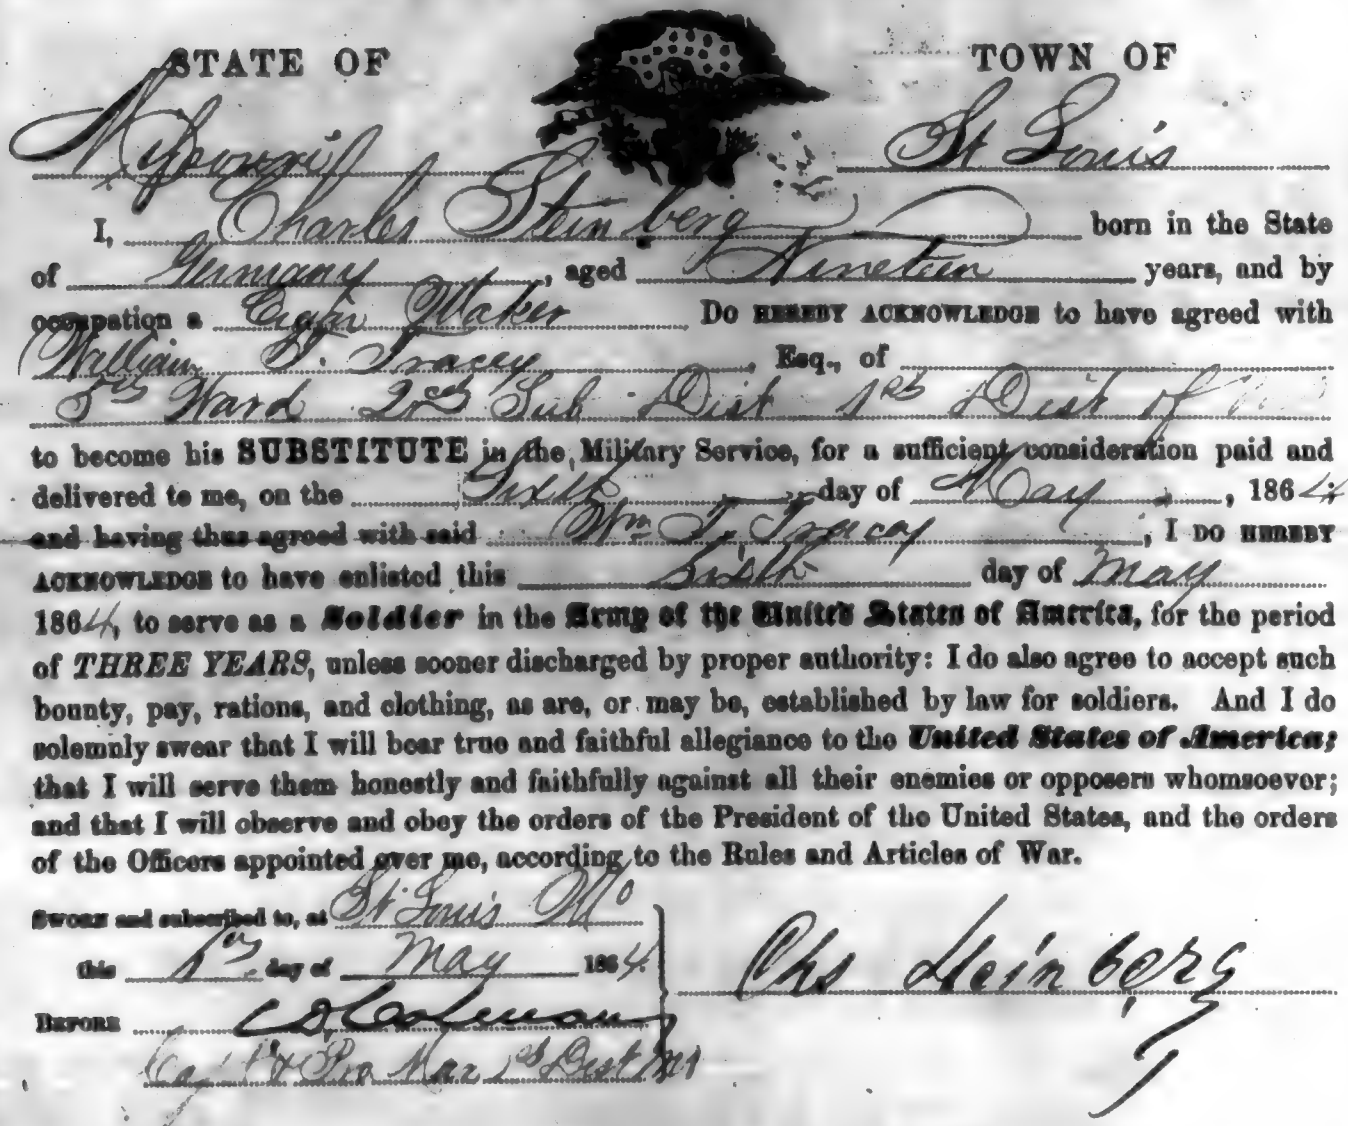 STATE OF
TOWN OF
Missouri
St Louis
I, Charles Steinberg born in the State
of Germany, aged Nineteen years, and by
occupation a Cigar Maker DO HEREBY ACKNOWLEDGE to have agreed with
William T. Tracey, Esq., of
5th Ward 2nd Sub Dist 1st Dist of
to become his SUBSTITUTE in the Military Service, for a sufficient consideration paid and
delivered to me, on the Sixth day of May, 1864;
and having thus agreed with said Wm T. Tracey, I DO HEREBY
ACKNOWLEDGE to have enlisted this Sixth day of May
1864, to serve as a Soldier in the Army of the United States of America, for the period
of THREE YEARS, unless sooner discharged by proper authority: I do also agree to accept such
bounty, pay, rations, and clothing, as are, or may be, established by law for soldiers. And I do
solemnly swear that I will bear true and faithful allegiance to the United States of America;
that I will serve them honestly and faithfully against all their enemies or opposers whomsoever;
and that I will observe and obey the orders of the President of the United States, and the orders
of the Officers appointed over me, according to the Rules and Articles of War.
SWORN and subscribed to, at St Louis Mo
this day of May 1864.
Chs Steinberg
BEFORE
Capt & Pro Mar 1st Dist Mo